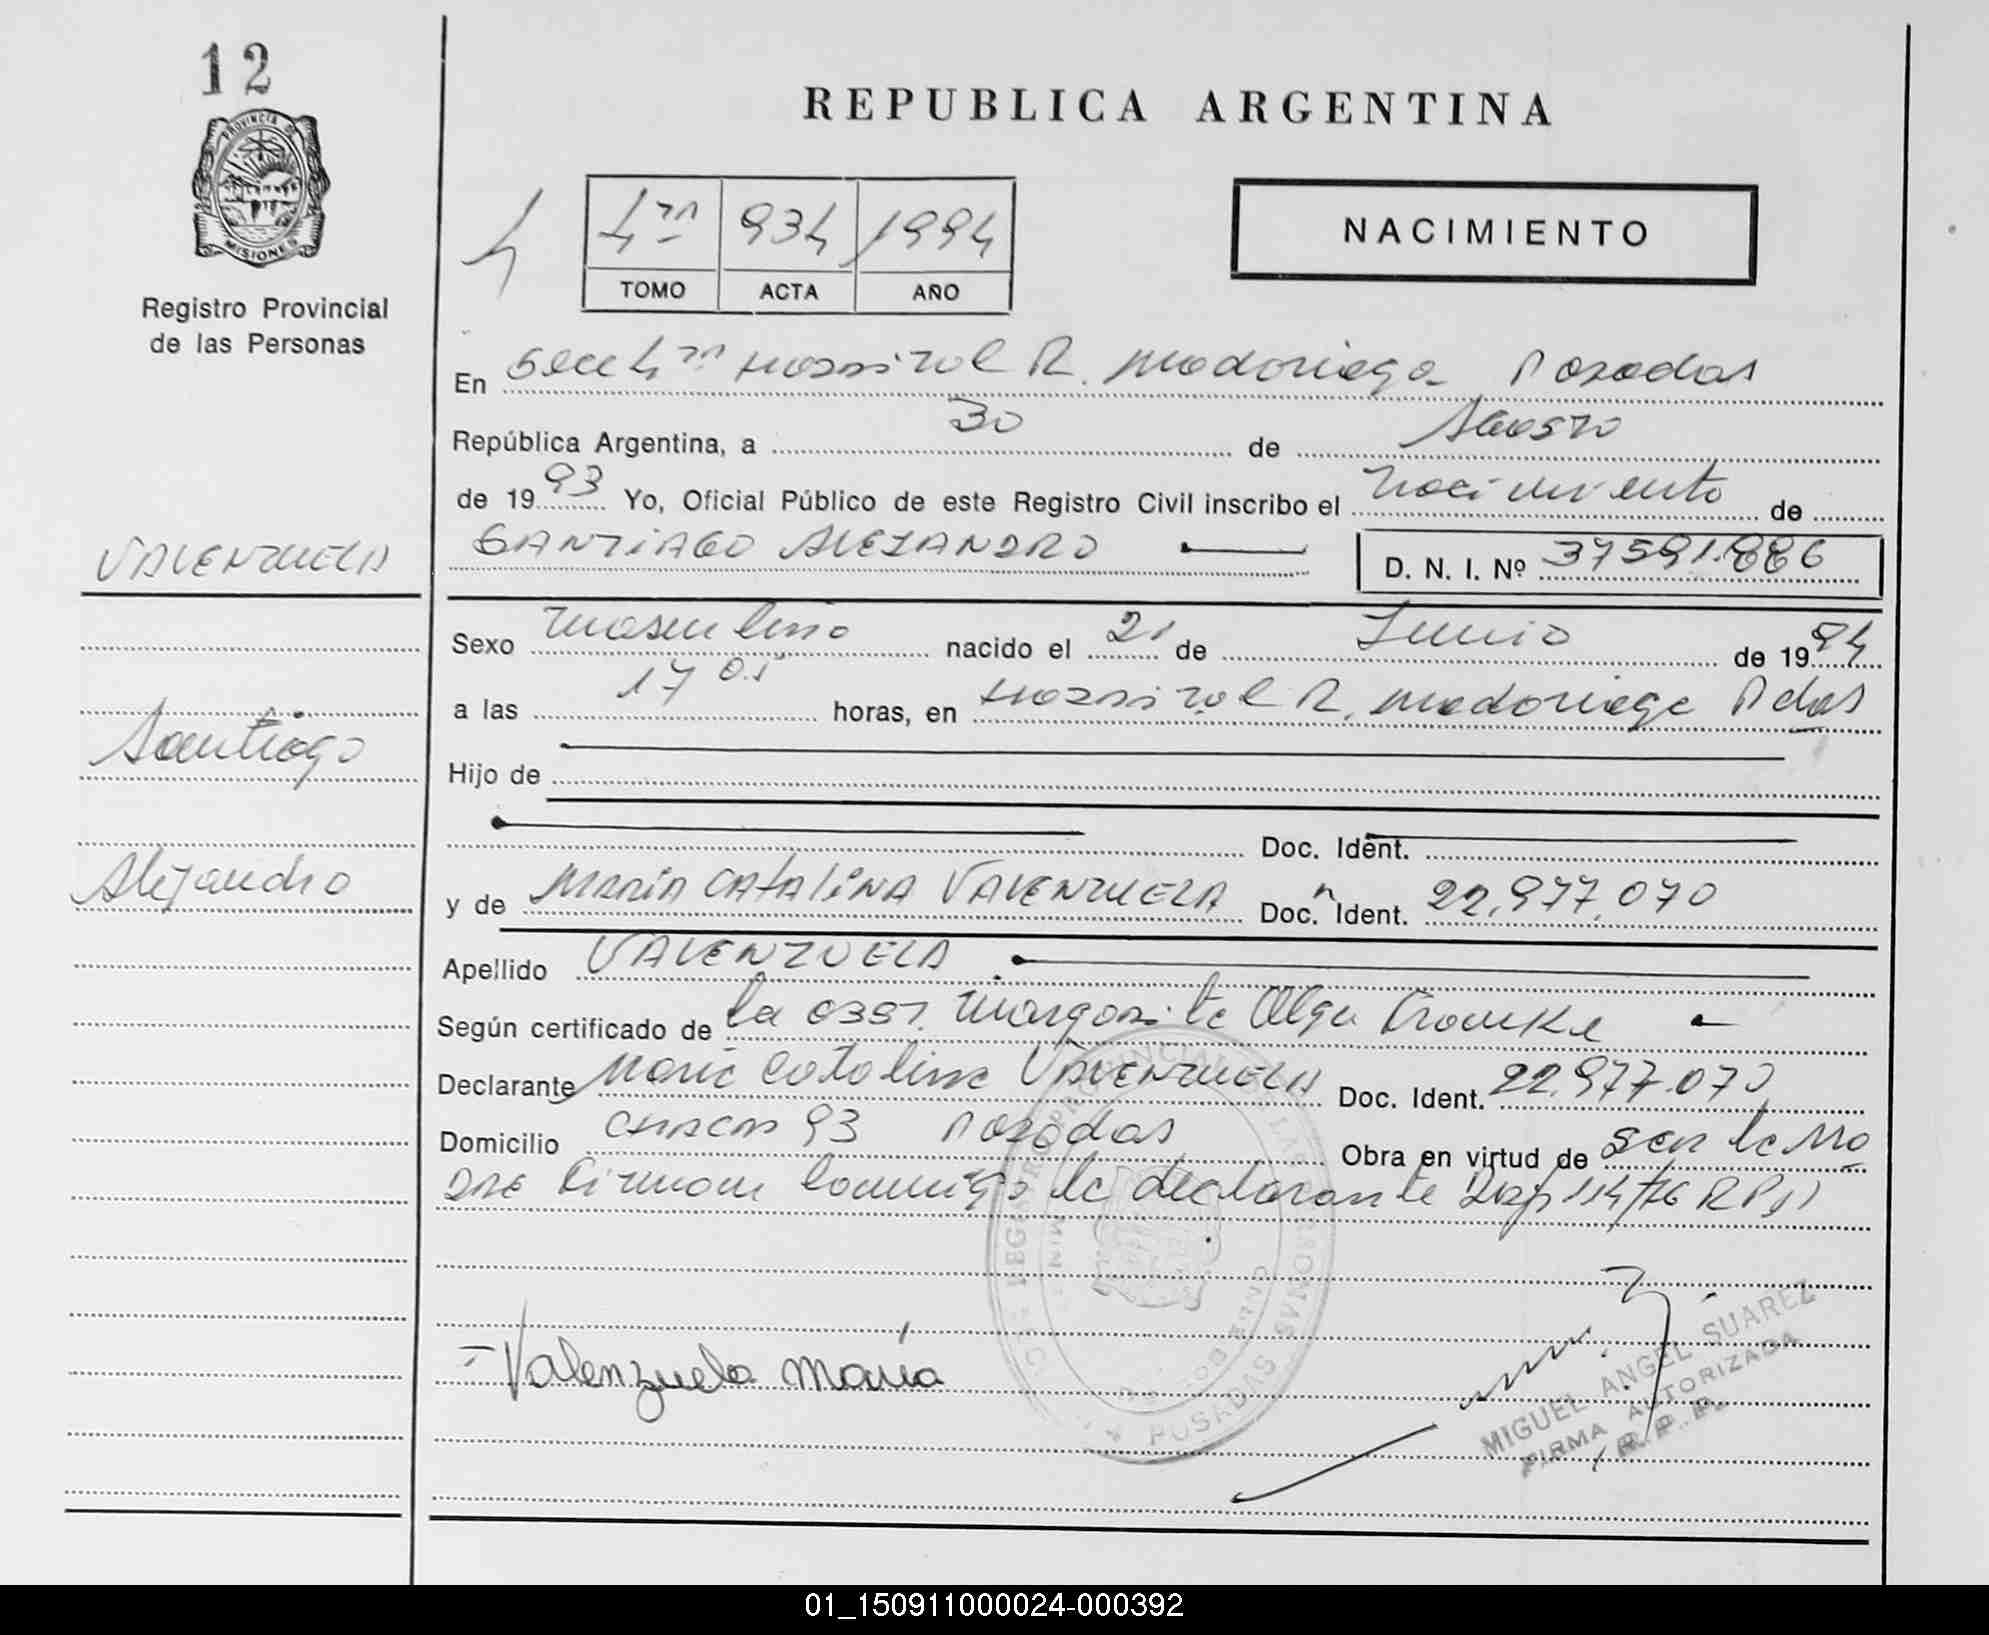 12
PROVINCIA DE
MISIONES
Registro Provincial
de las Personas
REPUBLICA ARGENTINA
4ta 934 1994
TOMO ACTA AÑO
NACIMIENTO
En Secc 4ta Hospital R. Madariaga Posadas
República Argentina, a 30 de Agosto
de 1993 Yo, Oficial Público de este Registro Civil inscribo el Nacimiento de
VALENZUELA
SANTIAGO ALEJANDRO D. N. I. Nº 37591.886
Sexo masculino nacido el 21 de Junio de 1994
a las 17 05 horas, en Hospital R. Madariaga Pdas
Santiago
Hijo de
Doc. Ident.
Alejandro
y de MARIA CATALINA VALENZUELA Doc. Ident. 22.977.070
Apellido VALENZUELA
Según certificado de la obst. Margarita Olga
Declarante Maria Catalina VALENZUELA Doc. Ident. 22.977.070
Domicilio CHACRA 93 Posadas Obra en virtud de ser la ma
dre Firman conmigo la declarante Disp 114/76 RPP
Valenzuela María
REGISTRO PROVINCIAL DE LAS PERSONAS
POSADAS
MIGUEL ANGEL SUAREZ
FIRMA AUTORIZADA
R.P.P.
01_150911000024-000392